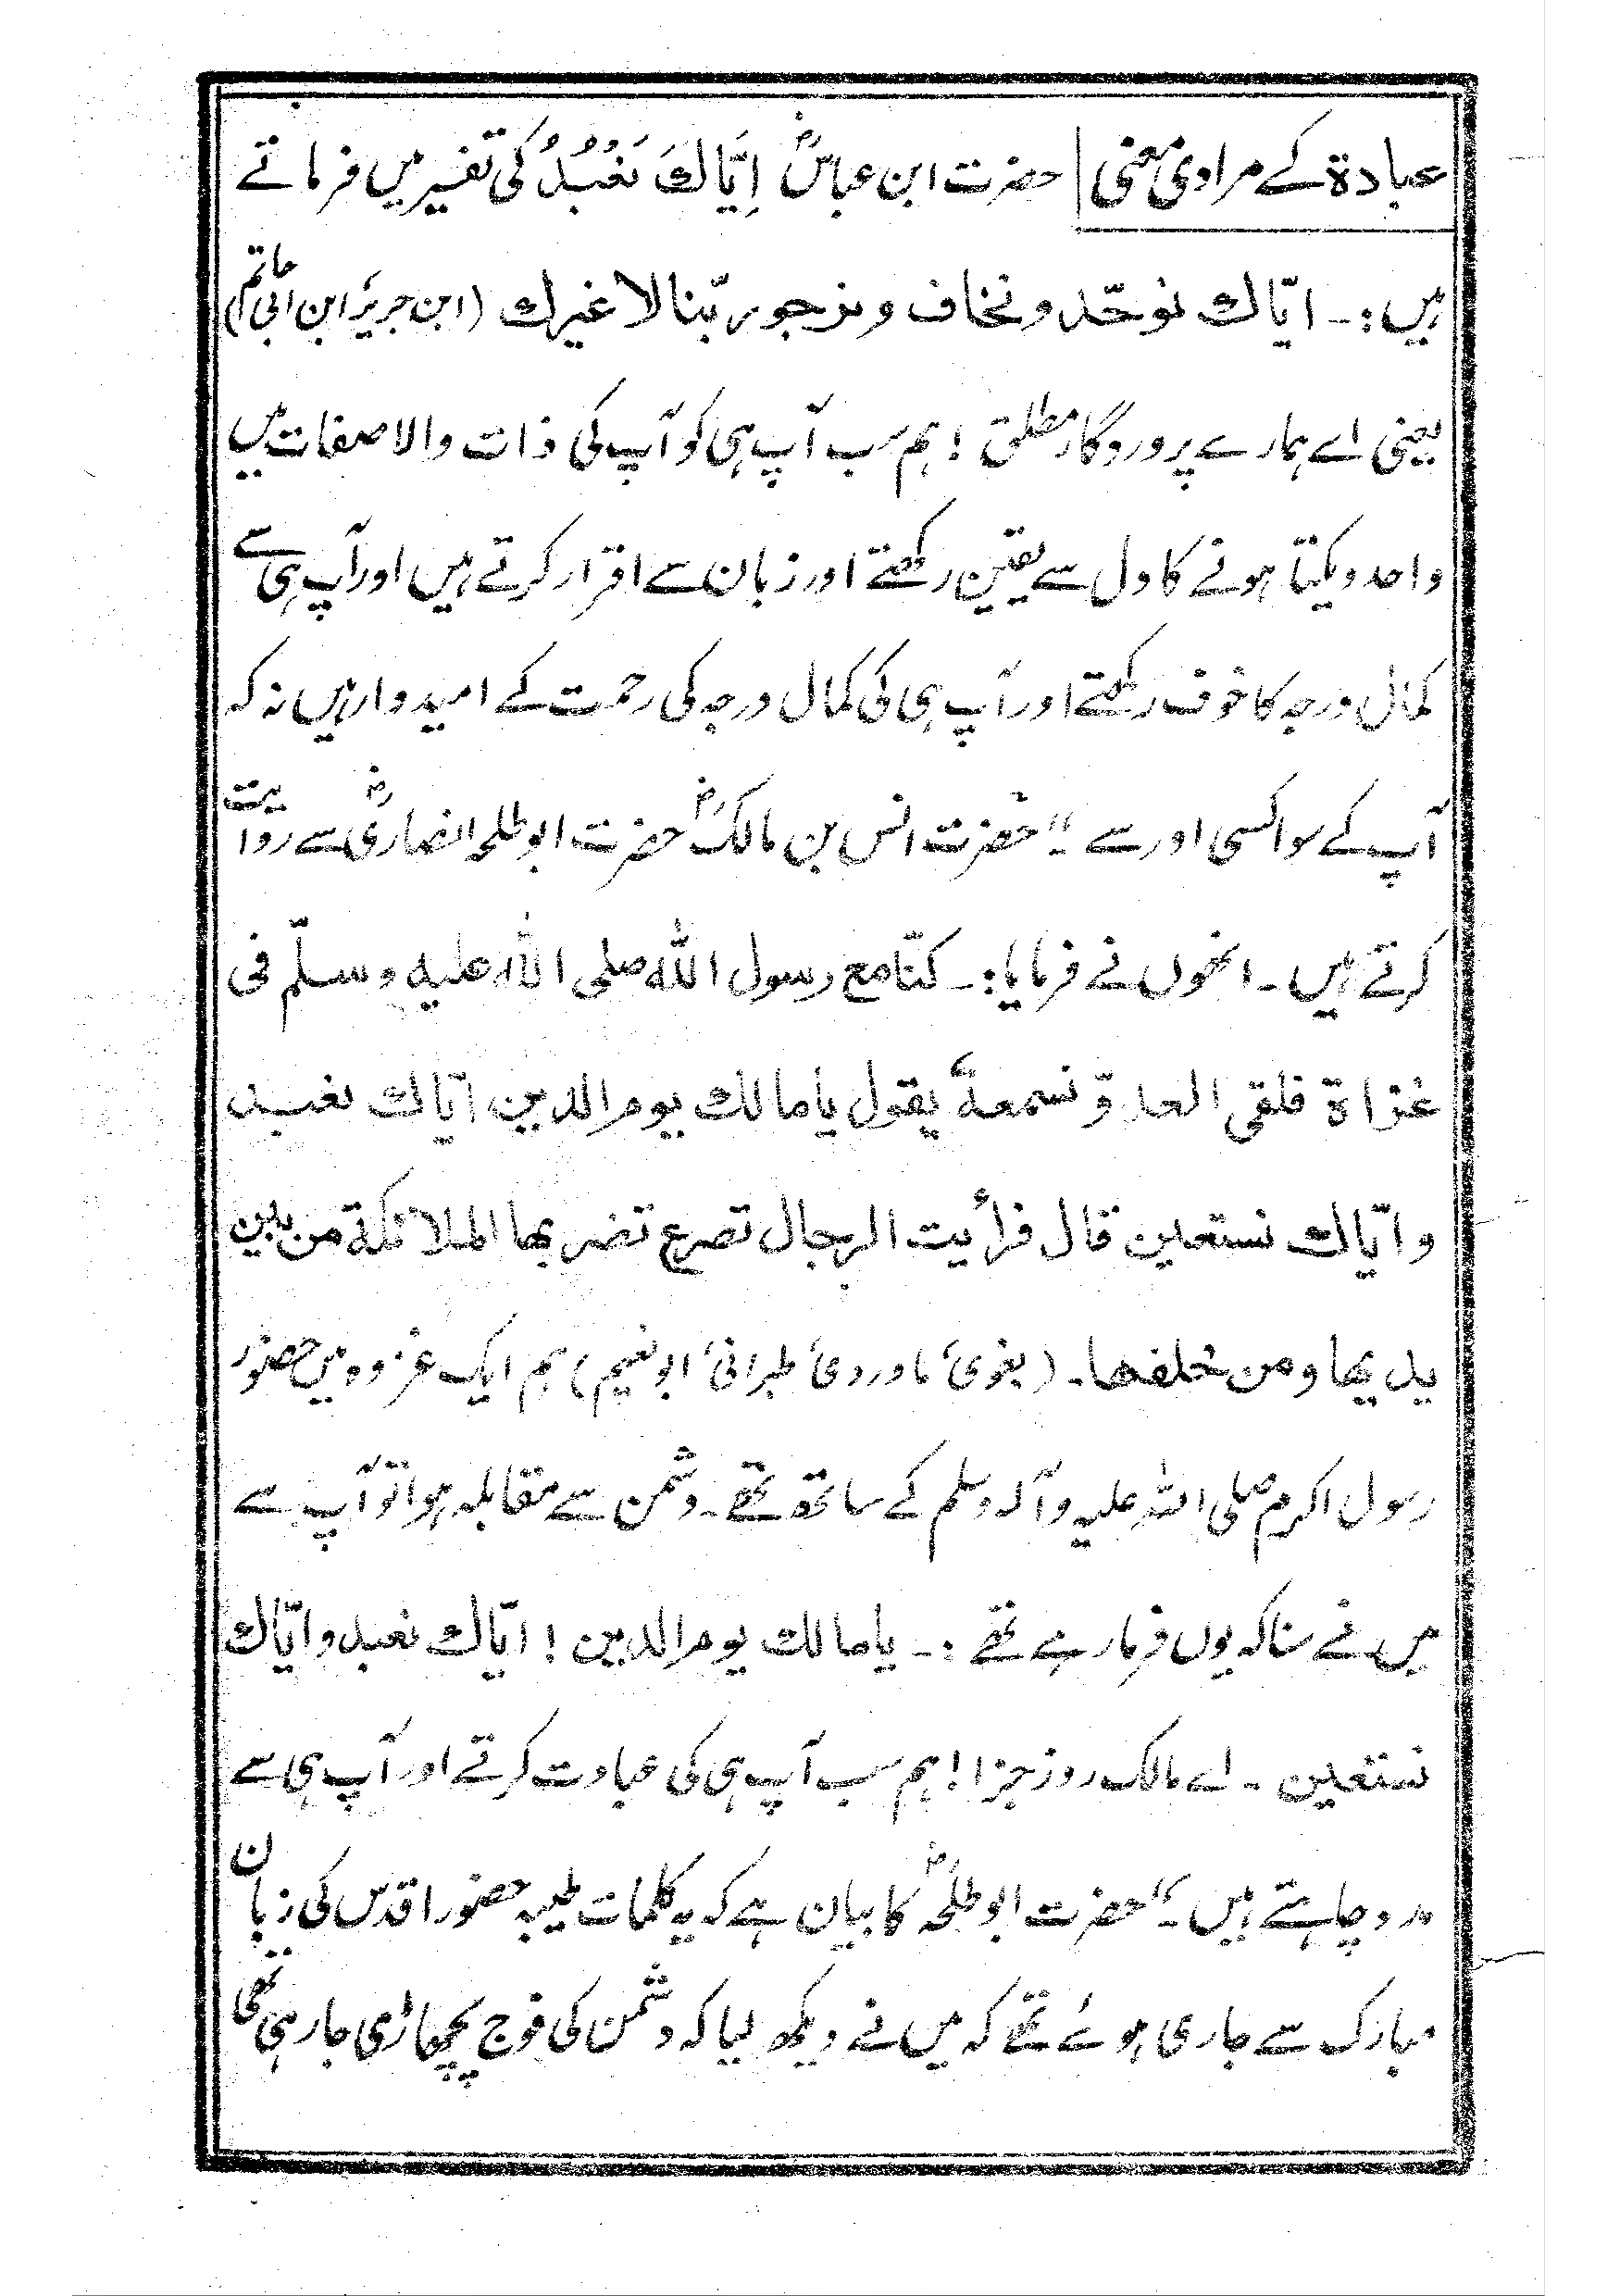 عبادة کے مرادی معنی حضرت ابن عباسؓ اِیَّاكَ نَعْبُدُ کی تفسیر میں فرماتے
ہیں :۔ ایّاك نوحّد ونخاف ونرجو ربّنا لا غيرك (ابن جریر، ابن ابی حاتم)
یعنی اے ہمارے پروردگار مطلق ! ہم سب آپ ہی کو آپ کی ذات والا صفات میں
واحد و یکتا ہونے کا دل سے یقین رکھتے اور زبان سے اقرار کرتے ہیں اور آپ ہی سے
کمال درجہ کا خوف رکھتے اور آپ ہی کی کمال درجہ کی رحمت کے امیدوار ہیں نہ کہ
آپ کے سوا کسی اور سے ۔" حضرت انس بن مالکؓ حضرت ابو طلحہ انصاریؓ سے روایت
کرتے ہیں ۔ انھوں نے فرمایا :۔ کنّا مع رسول اللہ صلی اللہ علیه وسلّم فی
غزاة فلقی العدوّ نسمعهٗ یقول یا مالك یوم الدین ایّاك نعبد
وایّاك نستعین قال فرأیت الرجال تصرع تضربها الملائكة من بین
یدیها ومن خلفها۔ (بغوی، ماوردی، طبرانی، ابو نعیم) ہم ایک غزوہ میں حضور
رسول اکرم صلی اللہ علیہ وآلہ وسلم کے ساتھ تھے ۔ دشمن سے مقابلہ ہوا تو آپ سے
میں نے سنا کہ یوں فرما رہے تھے :۔ یا مالك یوم الدین ! ایّاك نعبد وایّاك
نستعین ۔ اے مالک روز جزا ! ہم سب آپ ہی کی عبادت کرتے اور آپ ہی سے
مدد چاہتے ہیں ۔" حضرت ابو طلحہؓ کا بیان ہے کہ یہ کلمات طیبہ حضور اقدس کی زبان
مبارک سے جاری ہوئے تھے کہ میں نے دیکھ لیا کہ دشمن کی فوج پچھاڑی جا رہی تھی